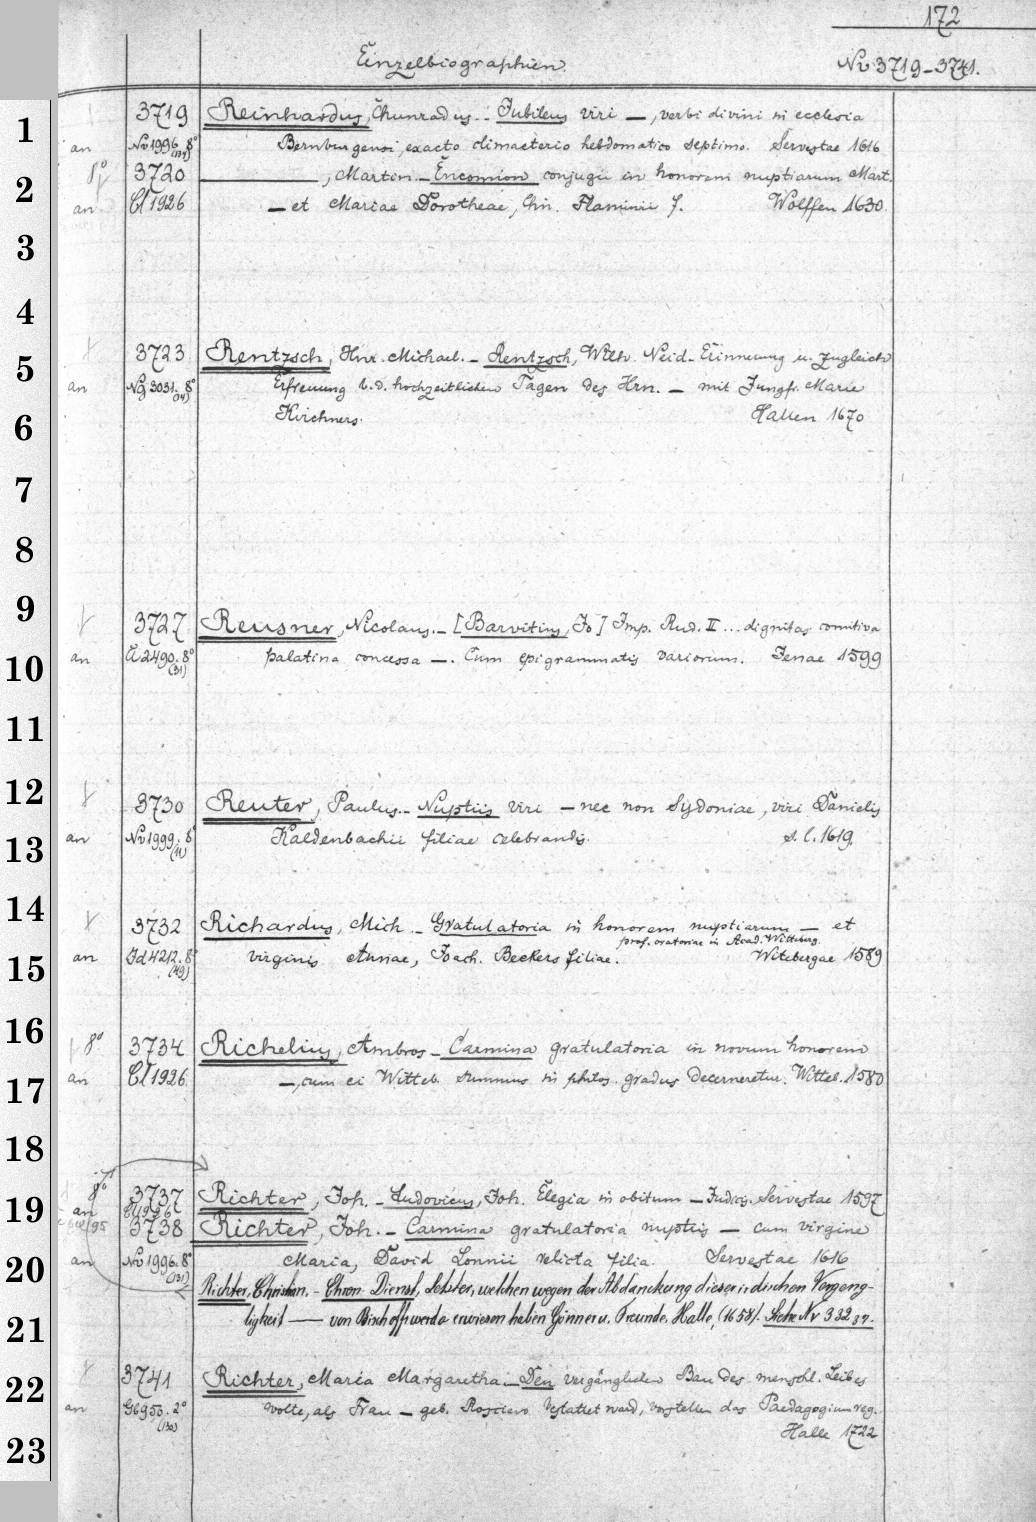 172
Einzelbiographien.
Nv 3719-3741.
1
3719 Reinhardus, Chunradus.- Jubileus viri —, verbi divini in ecclesia
an Nv 1996. 8° Bernburgensi, exacto climacterio hebdomatico septimo. Servestae 1616
2
8° 3720 ———, Martin.- Encomion conjugii in honorem nuptiarum Mart.
an Cl 1926 — et Mariae Dorotheae, Chn. Flaminii f. Wolffen 1630.
3
4
3723 Rentzsch, Hnr. Michael.- Rentzsch, Wilh. Neid-Erinnerung u. zugleich
5
an Ng 3031. 8° Erfreuung b. d. hochzeitlichen Tagen des Hrn. — mit Jungfr. Marie
6
Kirchners. Hallen 1670
7
8
9
3727 Reusner, Nicolaus.- [Barvitius, Jo] Imp. Rud. II ... dignitas comitiva
10
an A 2490. 8° (31) palatina concessa —. Cum epigrammatis variorum. Jenae 1599
11
12
3730 Reuter, Paulus.- Nuptiis viri — nec non Sydoniae, viri Danielis
13
an Nv 1999. 8° (11) Kaldenbachii filiae celebrandis. s. l. 1619.
14
3732 Richardus, Mich.- Gratulatoria in honorem nuptiarum — et
prof. oratoriae in Acad. Witteburg.
15
an Id 4212. 8° virginis Annae, Joach. Beckers filiae. Witebergae 1589
16
8° 3734 Richelius, Ambros- Carmina gratulatoria in novum honorem
17
an Cl 1926 —, cum ei Witteb. summus in philos. gradus decerneretur. Witteb. 1580
18
19
8° 3737 Richter, Joh.- Ludovicus, Joh. Elegia in obitum — Judicis. Servestae 1597
an Cl 1926
3738 Richter, Joh.- Carmina gratulatoria nuptiis — cum virgine
20
an Nv 1996. 8° (131) Maria, David Lonnii relicta filia. Servestae 1616
Richter, Christian.- Ehren-Dienst, Letzter, welchen wegen der Abdanckung dieser irdischen Vergeng-
21
ligkeit —— von Bischoffswerda erwiesen haben Gönner u. Freunde. Halle, (1658). Siehe Nr 332 37.
22
3741 Richter, Maria Margaretha.- Den vergänglichen Bau des menschl. Leibes
an Gb 950. 2° (130) wolte, als Frau — geb. Rosciero bestattet ward, vorstellen das Paedagogium reg.
23
Halle 1722